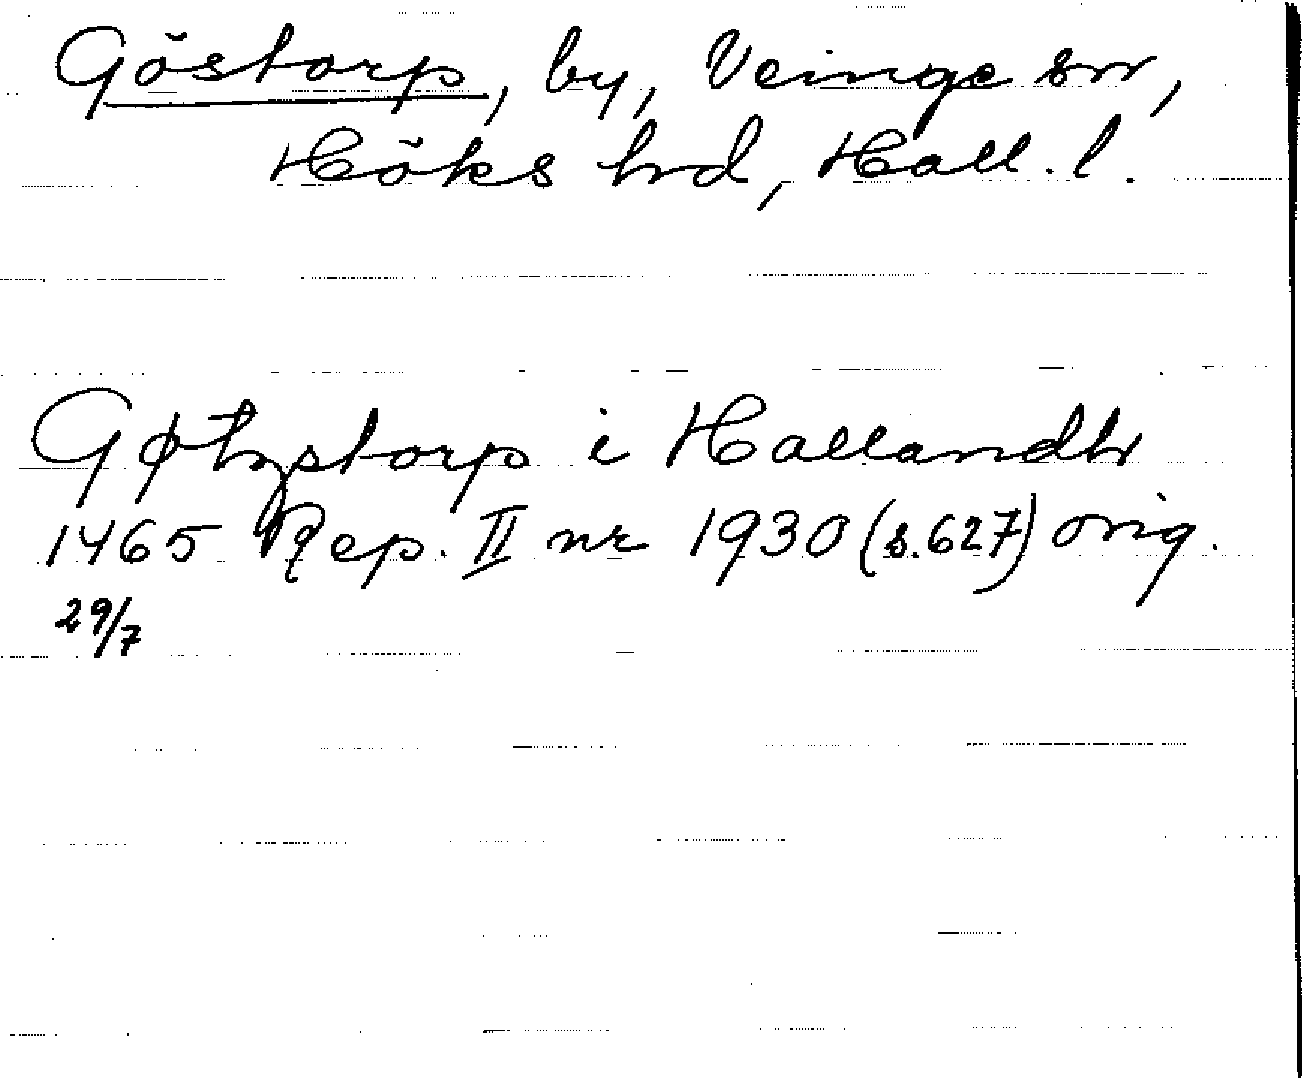 Göstorp, by, Veinge sn,
Höks hrd, Hall. l.
Gøtzstorp i Hallandh
1465 Rep. II nr 1930 (s.627) orig.
29/7